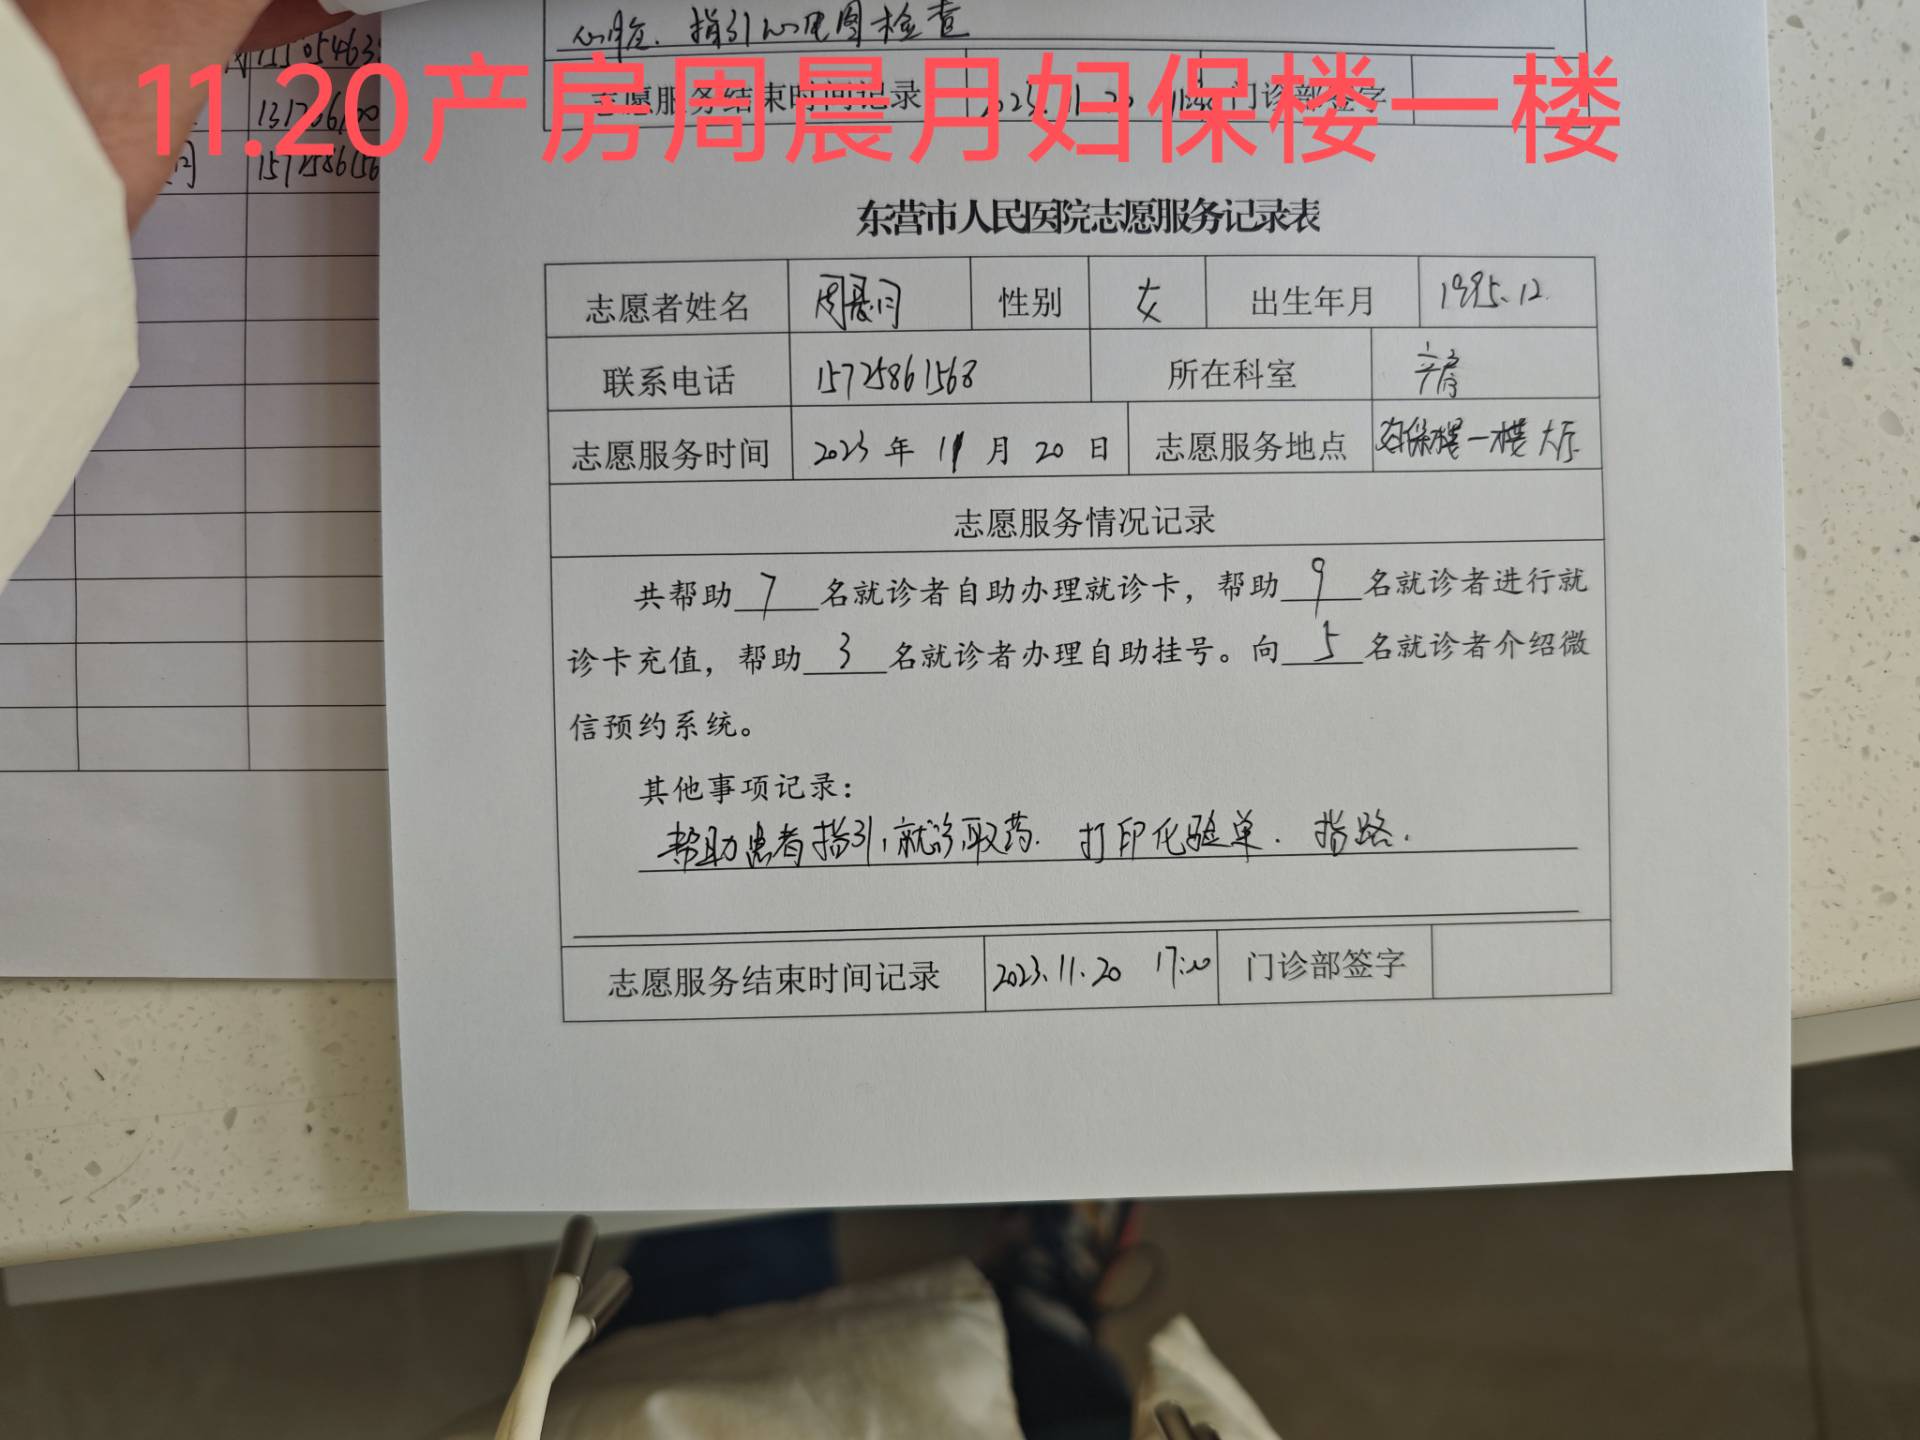 11.20产房周晨月妇保楼一楼
指引心电图检查
志愿服务结束时间记录 2023.11.20 门诊部签字
东营市人民医院志愿服务记录表
志愿者姓名 周晨月 性别 女 出生年月 1995.12.
联系电话 15725861568 所在科室 产房
志愿服务时间 2023 年 11 月 20 日 志愿服务地点 妇保楼一楼大厅
志愿服务情况记录
共帮助 7 名就诊者自助办理就诊卡，帮助 9 名就诊者进行就
诊卡充值，帮助 3 名就诊者办理自助挂号。向 5 名就诊者介绍微
信预约系统。
其他事项记录：
帮助患者指引，就诊，取药. 打印化验单. 指路.
志愿服务结束时间记录 2023.11.20 17:20 门诊部签字